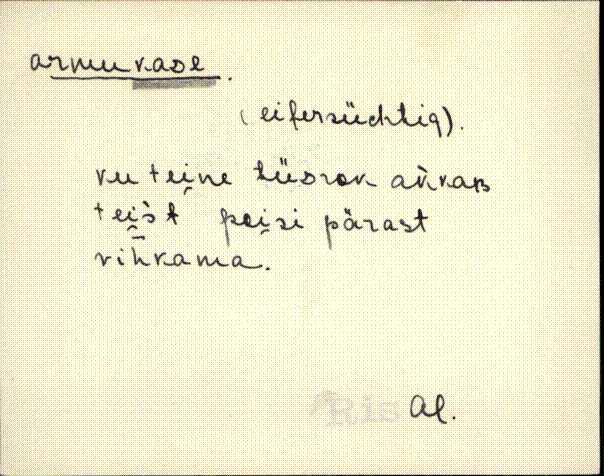 armukade.
(eifersüchtig).
ku teine tüdrok akkaB
tei̯s̀t poi̯si pärast
vih̄kama.
Ris Al.